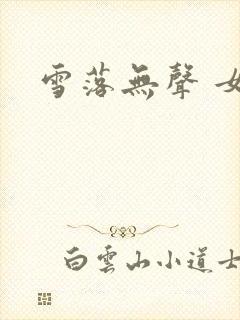 雪落無聲
白雲山小道士